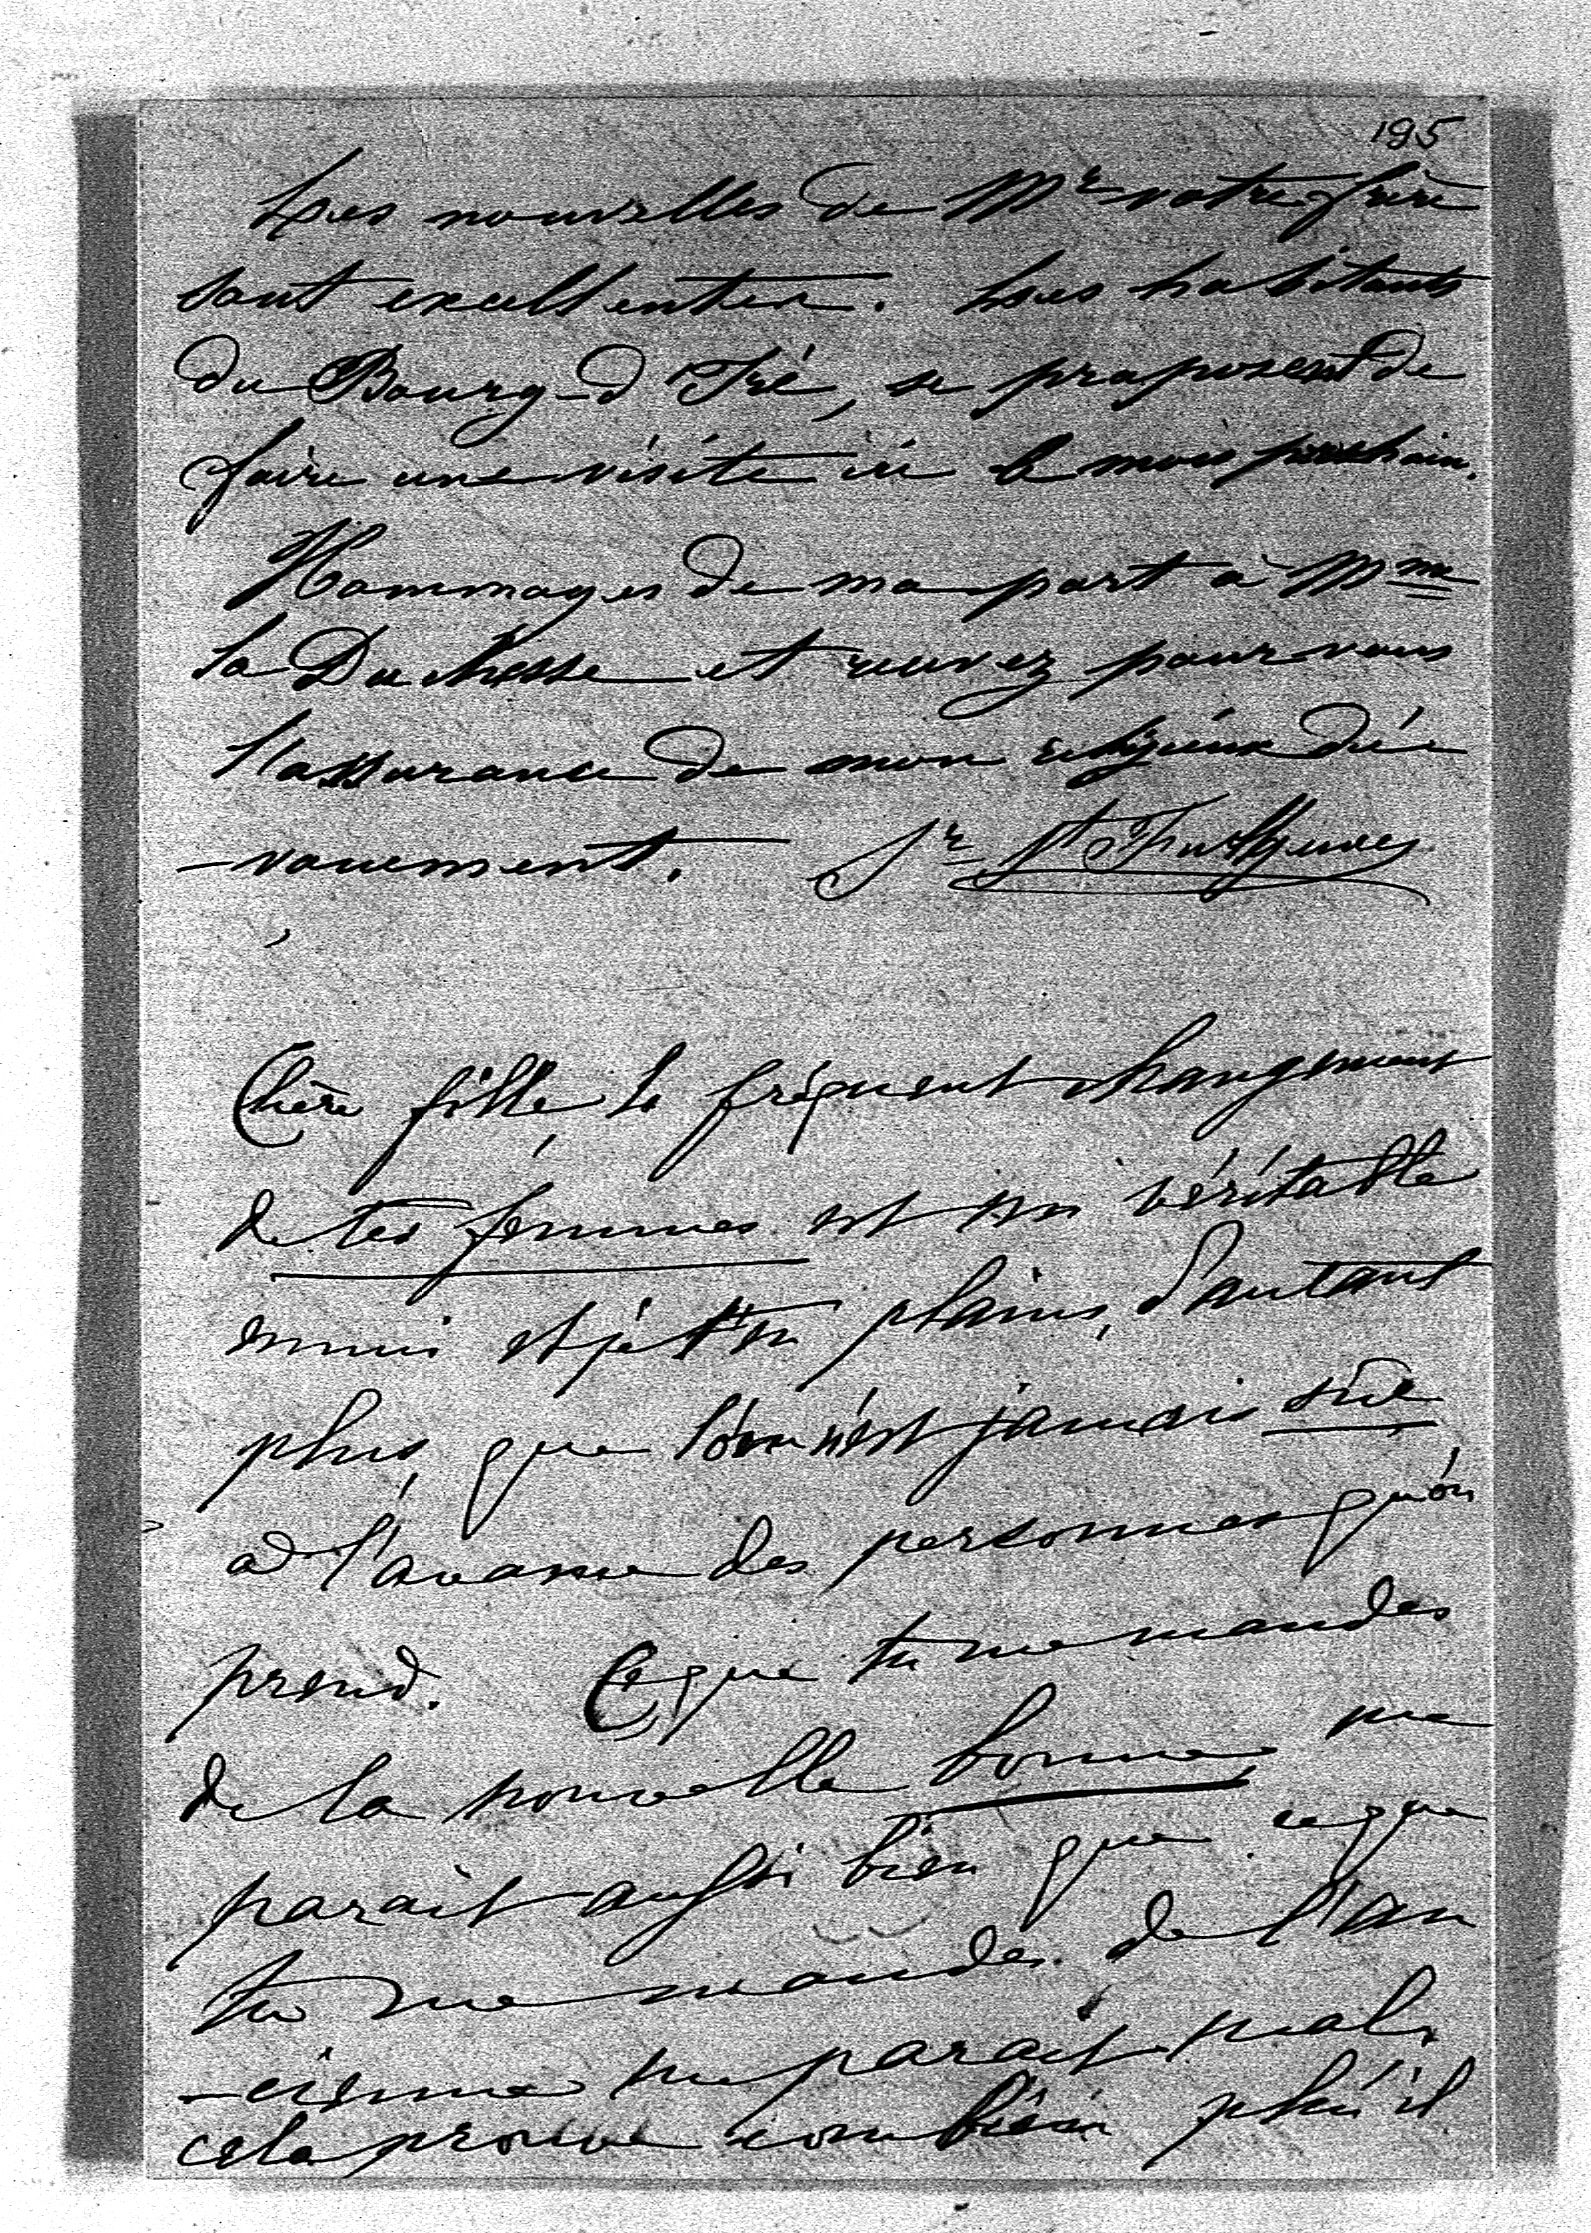 195
Les nouvelles de Mr votre frère
sont excellentes. Les habitants
du Bourg-d'Iré, se proposent de
faire une visite ici le mois prochain.
Hommages de ma part à Mme
la Duchesse et recevez pour vous
l'assurance de mon religieux dé
-vouement. Sr St
Chère fille le fréquent changement
de tes femmes est un véritable
ennui et je t'en plains, d'autant
plus, que l'on n'est jamais sûre
à l'avance des personnes qu'on
prend. Ce que tu me mandes
de la nouvelle bonne me
parait aussi bien que ce que
tu me mandes de l'an
-cienne me parait mal,
cela prouve combien il